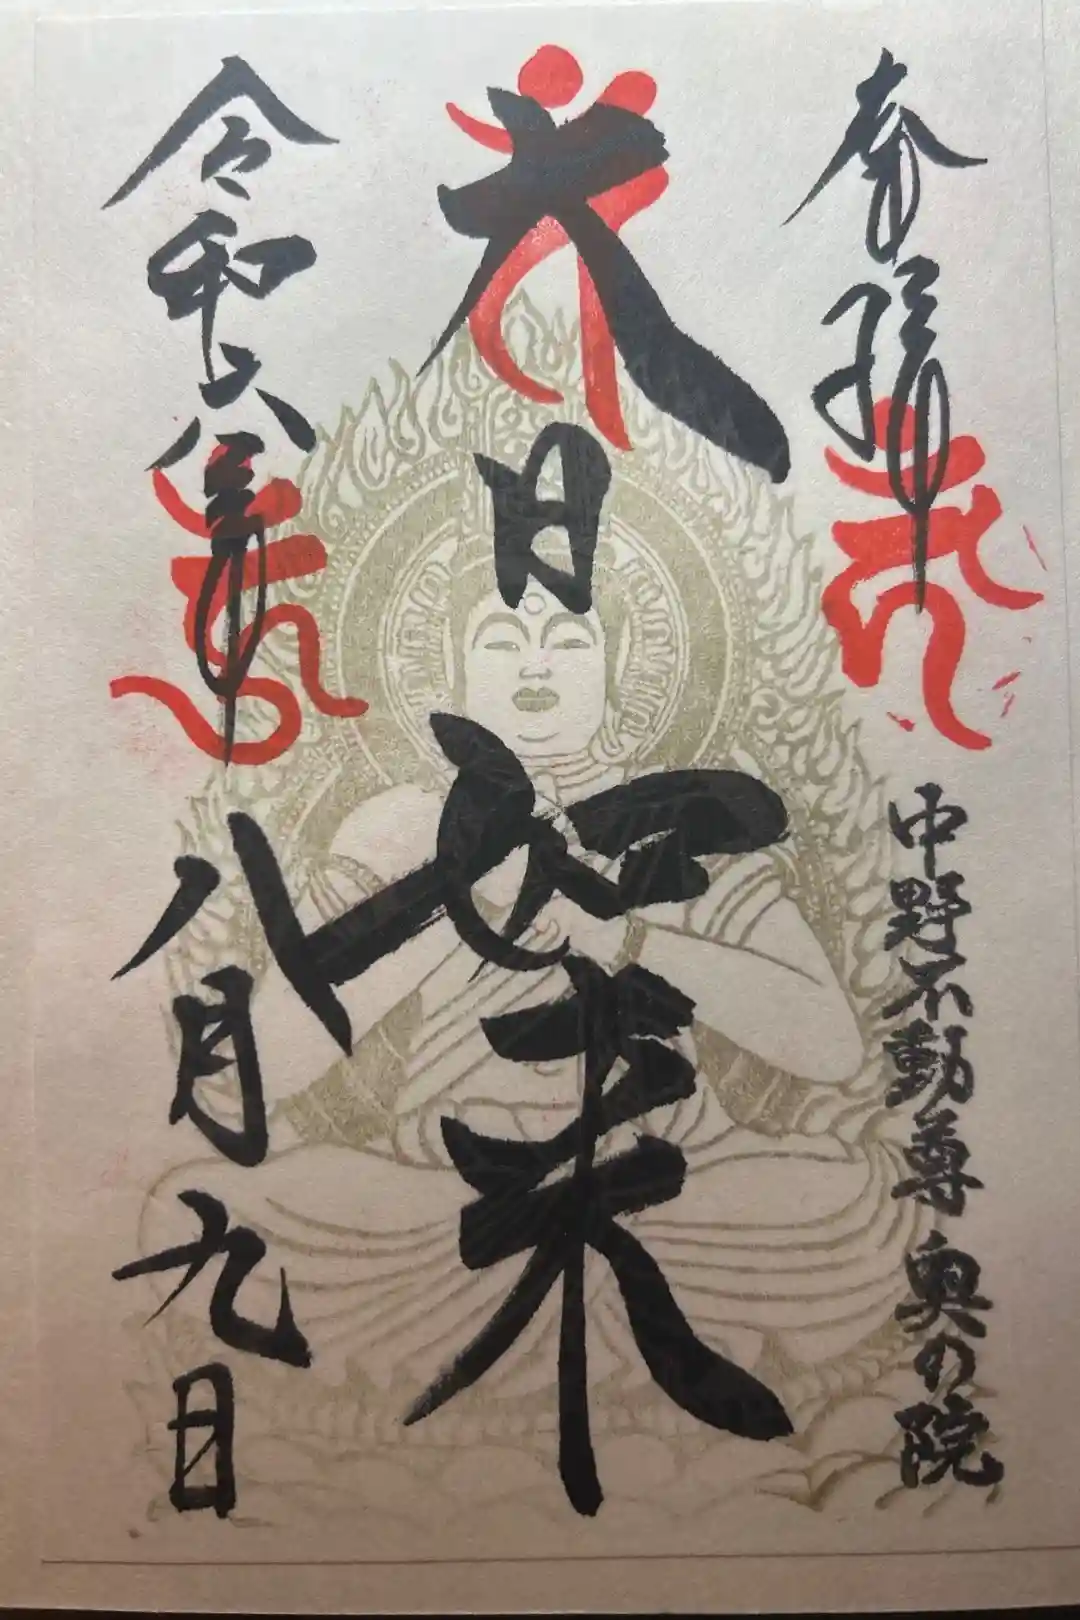 奉拝
中野不動尊 奥の院
大日如来
令和六年
八月九日